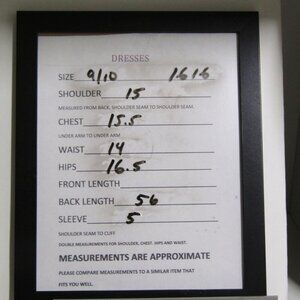 DRESSES
SIZE 9/10 1616
SHOULDER 15
MEASURED FROM BACK, SHOULDER SEAM TO SHOULDER SEAM.
CHEST 15.5
UNDER ARM TO UNDER ARM
WAIST 14
HIPS 16.5
FRONT LENGTH
BACK LENGTH 56
SLEEVE 5
SHOULDER SEAM TO CUFF
DOUBLE MEASUREMENTS FOR SHOULDER, CHEST. HIPS AND WAIST.
MEASUREMENTS ARE APPROXIMATE
PLEASE COMPARE MEASUREMENTS TO A SIMILAR ITEM THAT
FITS YOU WELL.